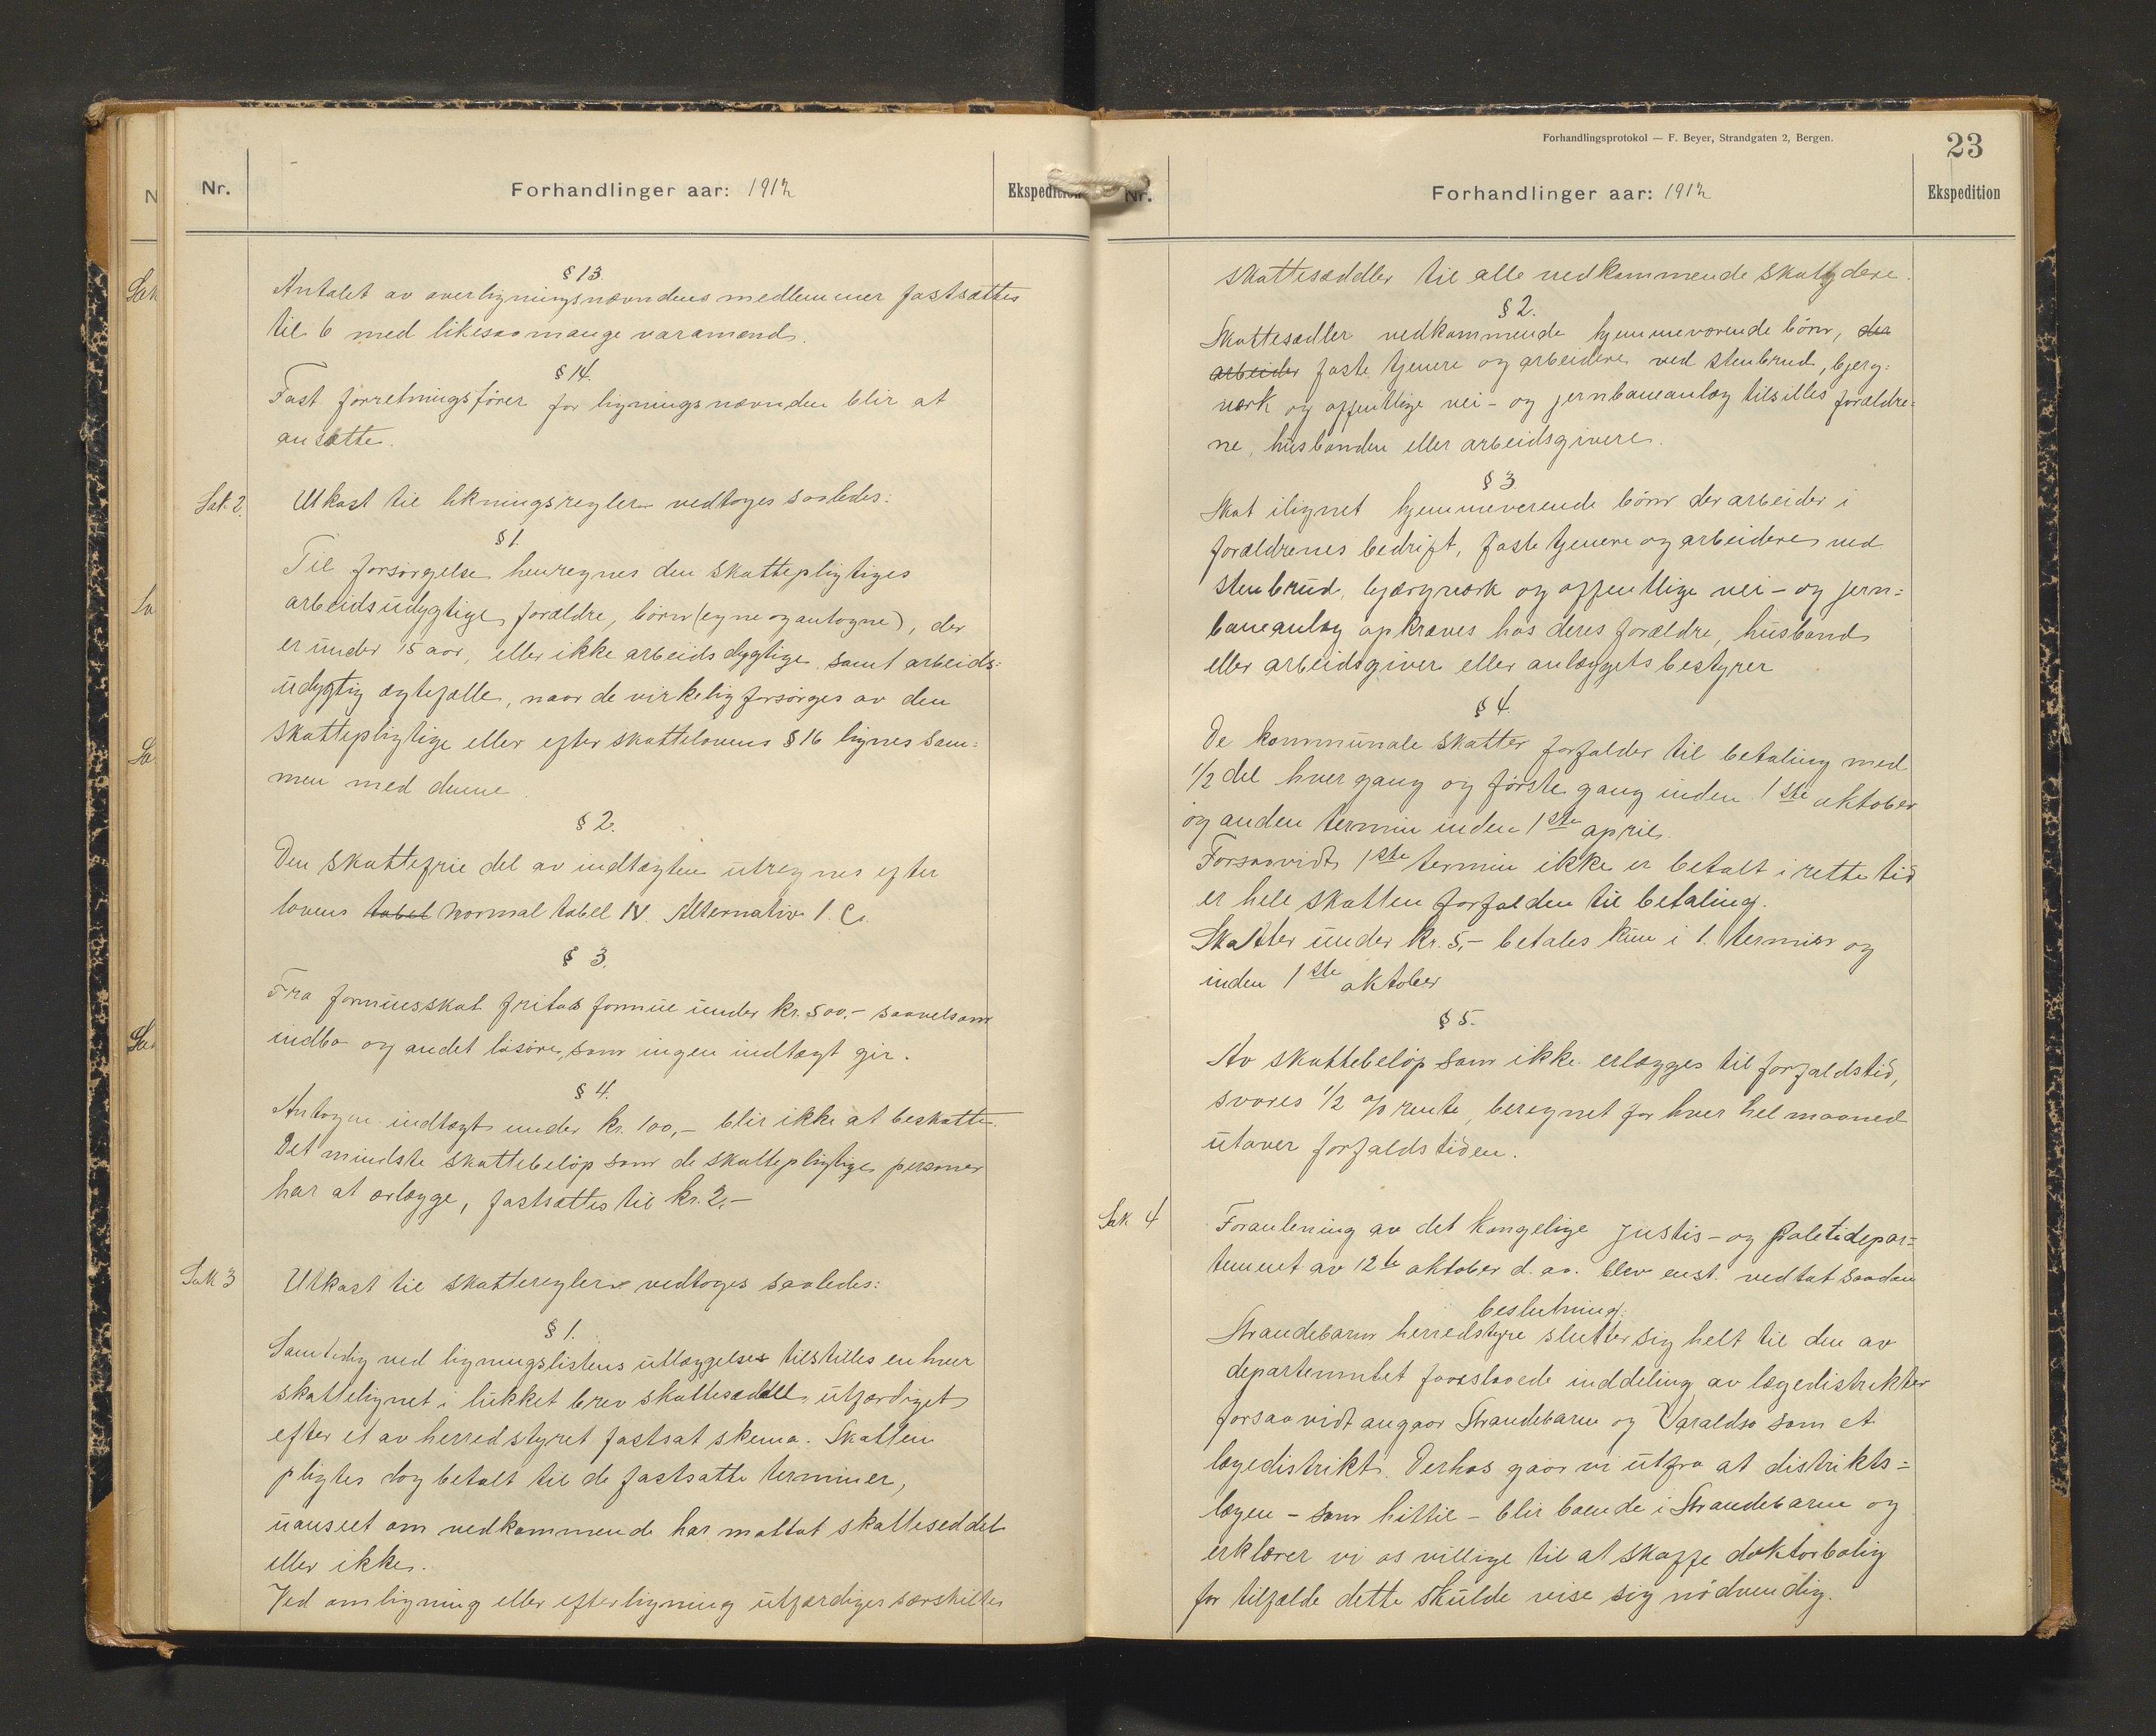 Nr.
Forhandlinger aar: 1912
Ekspedition
§ 13
Antalet av overligningsnævndens medlemmer fastsættes
til 6 med likesaamange varamænd.
§ 14.
Fast forretningsfører for ligningsnævnden blir at
ansætte.
Sak 2.
Utkast til likningsregler vedtoges saaledes:
§ 1.
Til forsørgelse henregnes den skattepligtiges
arbeidsudygtige forældre, børn (egne og antogne), der
er under 15 aar, eller ikke arbeidsdygtige samt arbeids=
udygtig ægtefælle, naar de virkelig forsørges av den
skattepligtige eller efter skattelovens § 16 lignes sam=
men med denne.
§ 2.
Den skattefrie del av indtægten utregnes efter
lovens tabel normal tabel IV. Alternativ 1. C.
§ 3.
Fra formuesskat fritas formue under kr. 500.- saavelsom
indbo og andet løsøre, som ingen indtægt gir.
§ 4.
Antagen indtægt under kr. 100,- blir ikke at beskatte.
Det mindste skattebeløp som de skattepligtige personer
har at erlægge, fastsættes til kr. 2,-
Sak 3
Utkast til skatteregler vedtoges saaledes:
§ 1.
Samtidig ved ligningslistens utlæggelse tilstilles enhver
skattelignet i lukket brev skattesæddel, utfærdiget
efter et av herredstyret fastsat skema. Skatten
pligtes dog betalt til de fastsatte terminer,
uanseet om vedkommende har mottat skatteseddel
eller ikke.
Ved omligning eller efterligning utfærdiges særskilte
Forhandlingsprotokol — F. Beyer, Strandgaten 2, Bergen.
23
Nr.
Forhandlinger aar: 1912
Ekspedition
skattesæddler til alle vedkommende skatydere.
§ 2.
Skattesedler vedkommende hjemmeværende børn, der
arbeider faste tjenere og arbeidere ved stenbrud, bjerg=
verk og offentlige vei- og jernbaneanlæg tilstilles forældre=
ne, husbonden eller arbeidsgivere.
§ 3
Skat ilignet hjemmeverende børn der arbeider i
forældrenes bedrift, faste tjenere og arbeidere ved
stenbrud, bjærgverk og offentlige vei- og jern=
baneanlæg opkræves hos deres forældre, husbond
eller arbeidsgiver eller anlæggets bestyrer
§ 4.
De kommunale skatter forfalder til betaling med
1/2 del hver gang og første gang inden 1ste oktober
og anden termin inden 1ste april.
Forsaavidt 1ste termin ikke er betalt i rette tid
er hele skatten forfalden til betaling.
Skatter under kr. 5,- betales kun i 1. termin og
inden 1ste oktober
§ 5.
Av skattebeløp som ikke erlægges til forfaldstid,
svares 1/2 % rente, beregnet for hver hel maaned
utover forfaldstiden.
Sak 4
Foranlening av det kongelige justis- og politidepar=
tement av 12te oktober d. aa. blev enst. vedtat saadan
beslutning:
Strandebarm herredstyre slutter sig helt til den av
departemntet foreslaaede inddeling av lægedistrikter
forsaavidt angaar Strandebarm og Varaldsø som et
lægedistrikt. Derhos gaar vi utfra at distrikts=
lægen - som hittil - blir boende i Strandebarm og
erklærer vi os villige til at skaffe doktorbolig
for tilfælde dette skulde vise sig nødvendig.